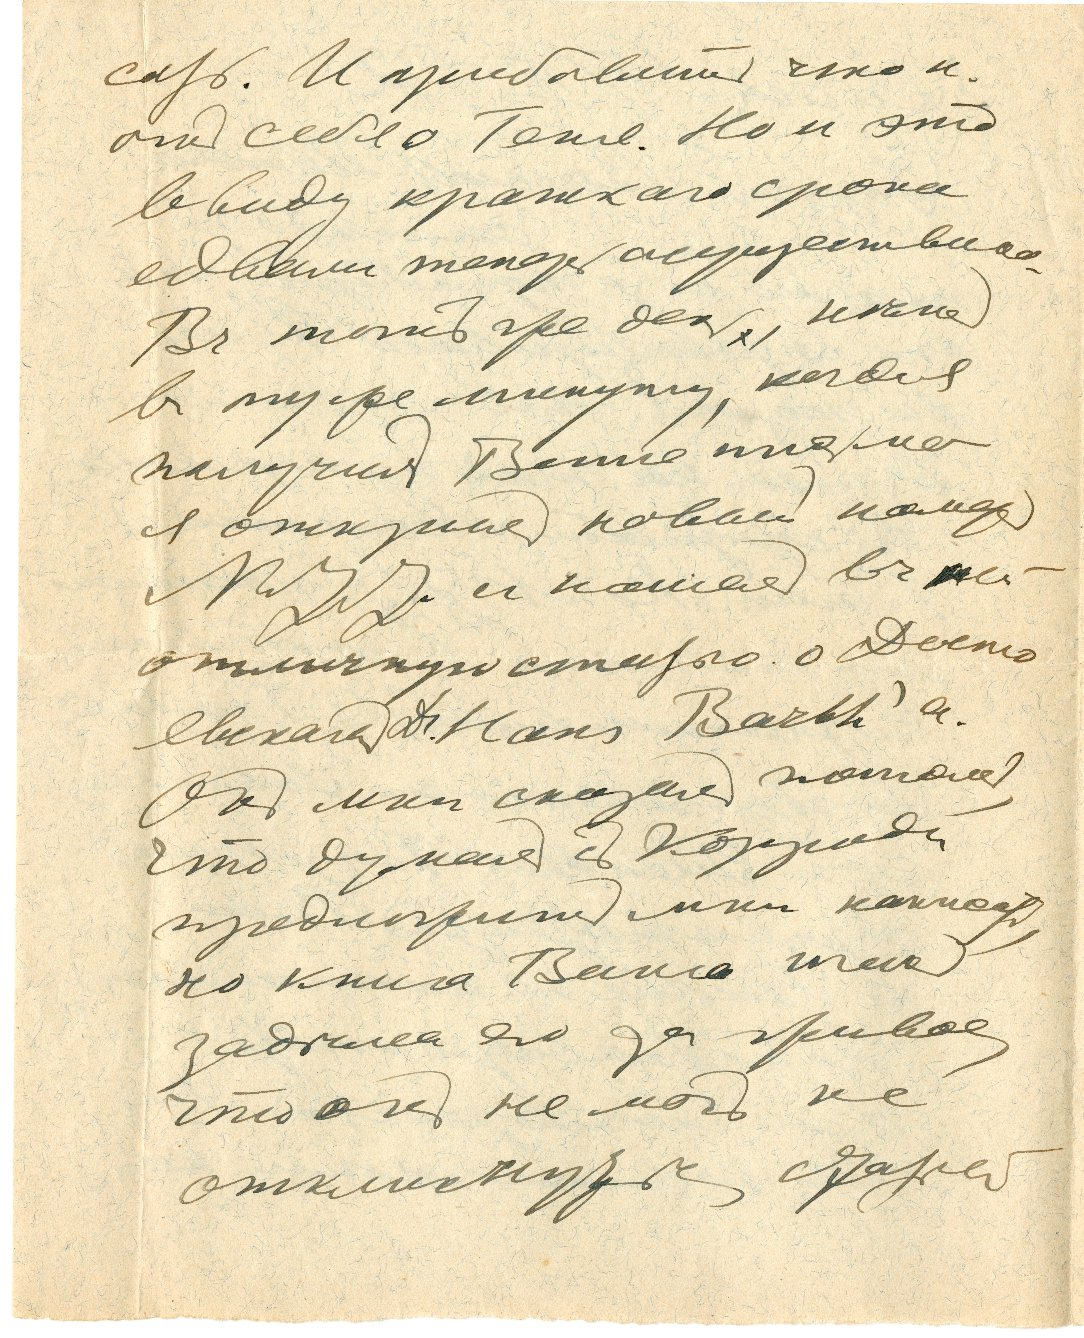 сать. И прибавить что н.
отъ себя о Тенѣ. Но и это
ввиду краткаго срока
едвали теперь осуществимо.
Въ тотъ же день х),
въ ту же минуту, когда я
получилъ Ваше письмо
я открылъ новый номеръ
N.Z.Z. и нашелъ въ ней
отличную статью о Досто
евскомъ Dr. Hans Barth'а.
Онъ мнѣ сказалъ потомъ,
что думалъ съ Корроди
предложить мнѣ написать,
но книга Ваша
задѣла его за живое,
что онъ не могъ не
откликнуться статьей